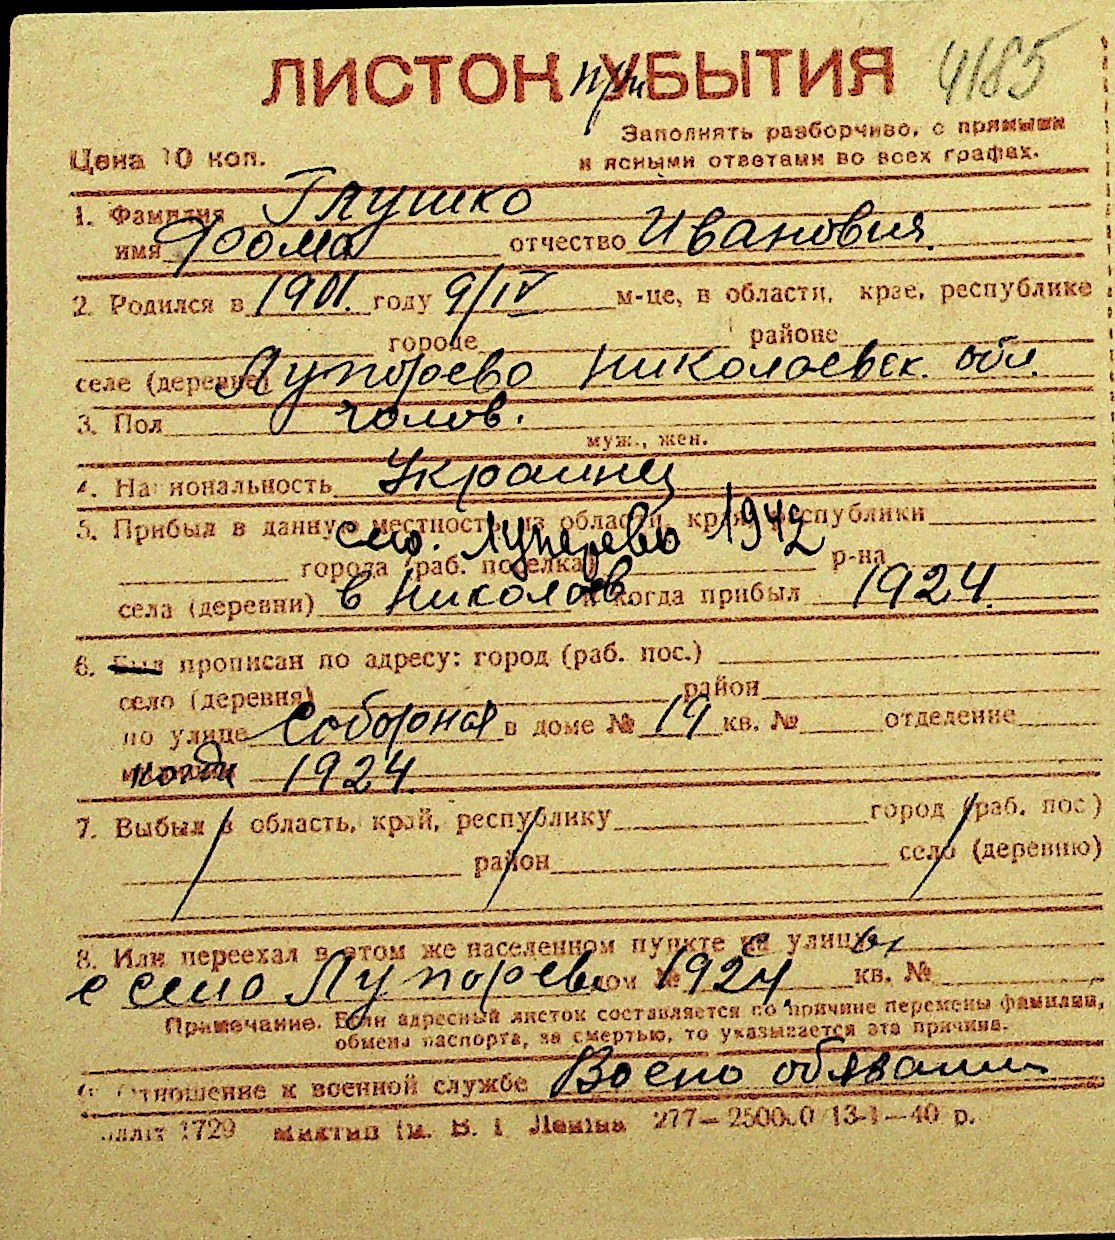 ЛИСТОК при УБЫТИЯ 4185
Заполнять разборчиво, с прямыми
Цена 10 коп. и ясными ответами во всех графах.
1. Фамилия Глушко
имя Фома отчество Иванович
2. Родился в 1901. году 9/IV м-це, в области, крае, республике
городе районе
селе (деревне) Лупорево Николаевск. обл.
3. Пол чолов.
муж., жен.
4. Национальность Украинец
5. Прибыл в данную местность из области, края, республики
село. 1942
города (раб. поселка) р-на
села (деревни) в Николаев. и когда прибыл 1924.
6. Был прописан по адресу: город (раб. пос.)
село (деревня) район
по улице Соборная в доме № 19 кв. № отделение
когда 1924.
7. Выбыл в область, край, республику город (раб. пос.)
район село (деревню)
8. Или переехал в этом же населенном пункте на улицу
с село Лупорево дом № 1924. кв. №
Примечание. Если адресный листок составляется по причине перемены фамилии,
обмена паспорта, за смертью, то указывается эта причина.
Отношение к военной службе Воено обязани
1729 ім. В. І. Леніна 277—250000 13-1—40 р.